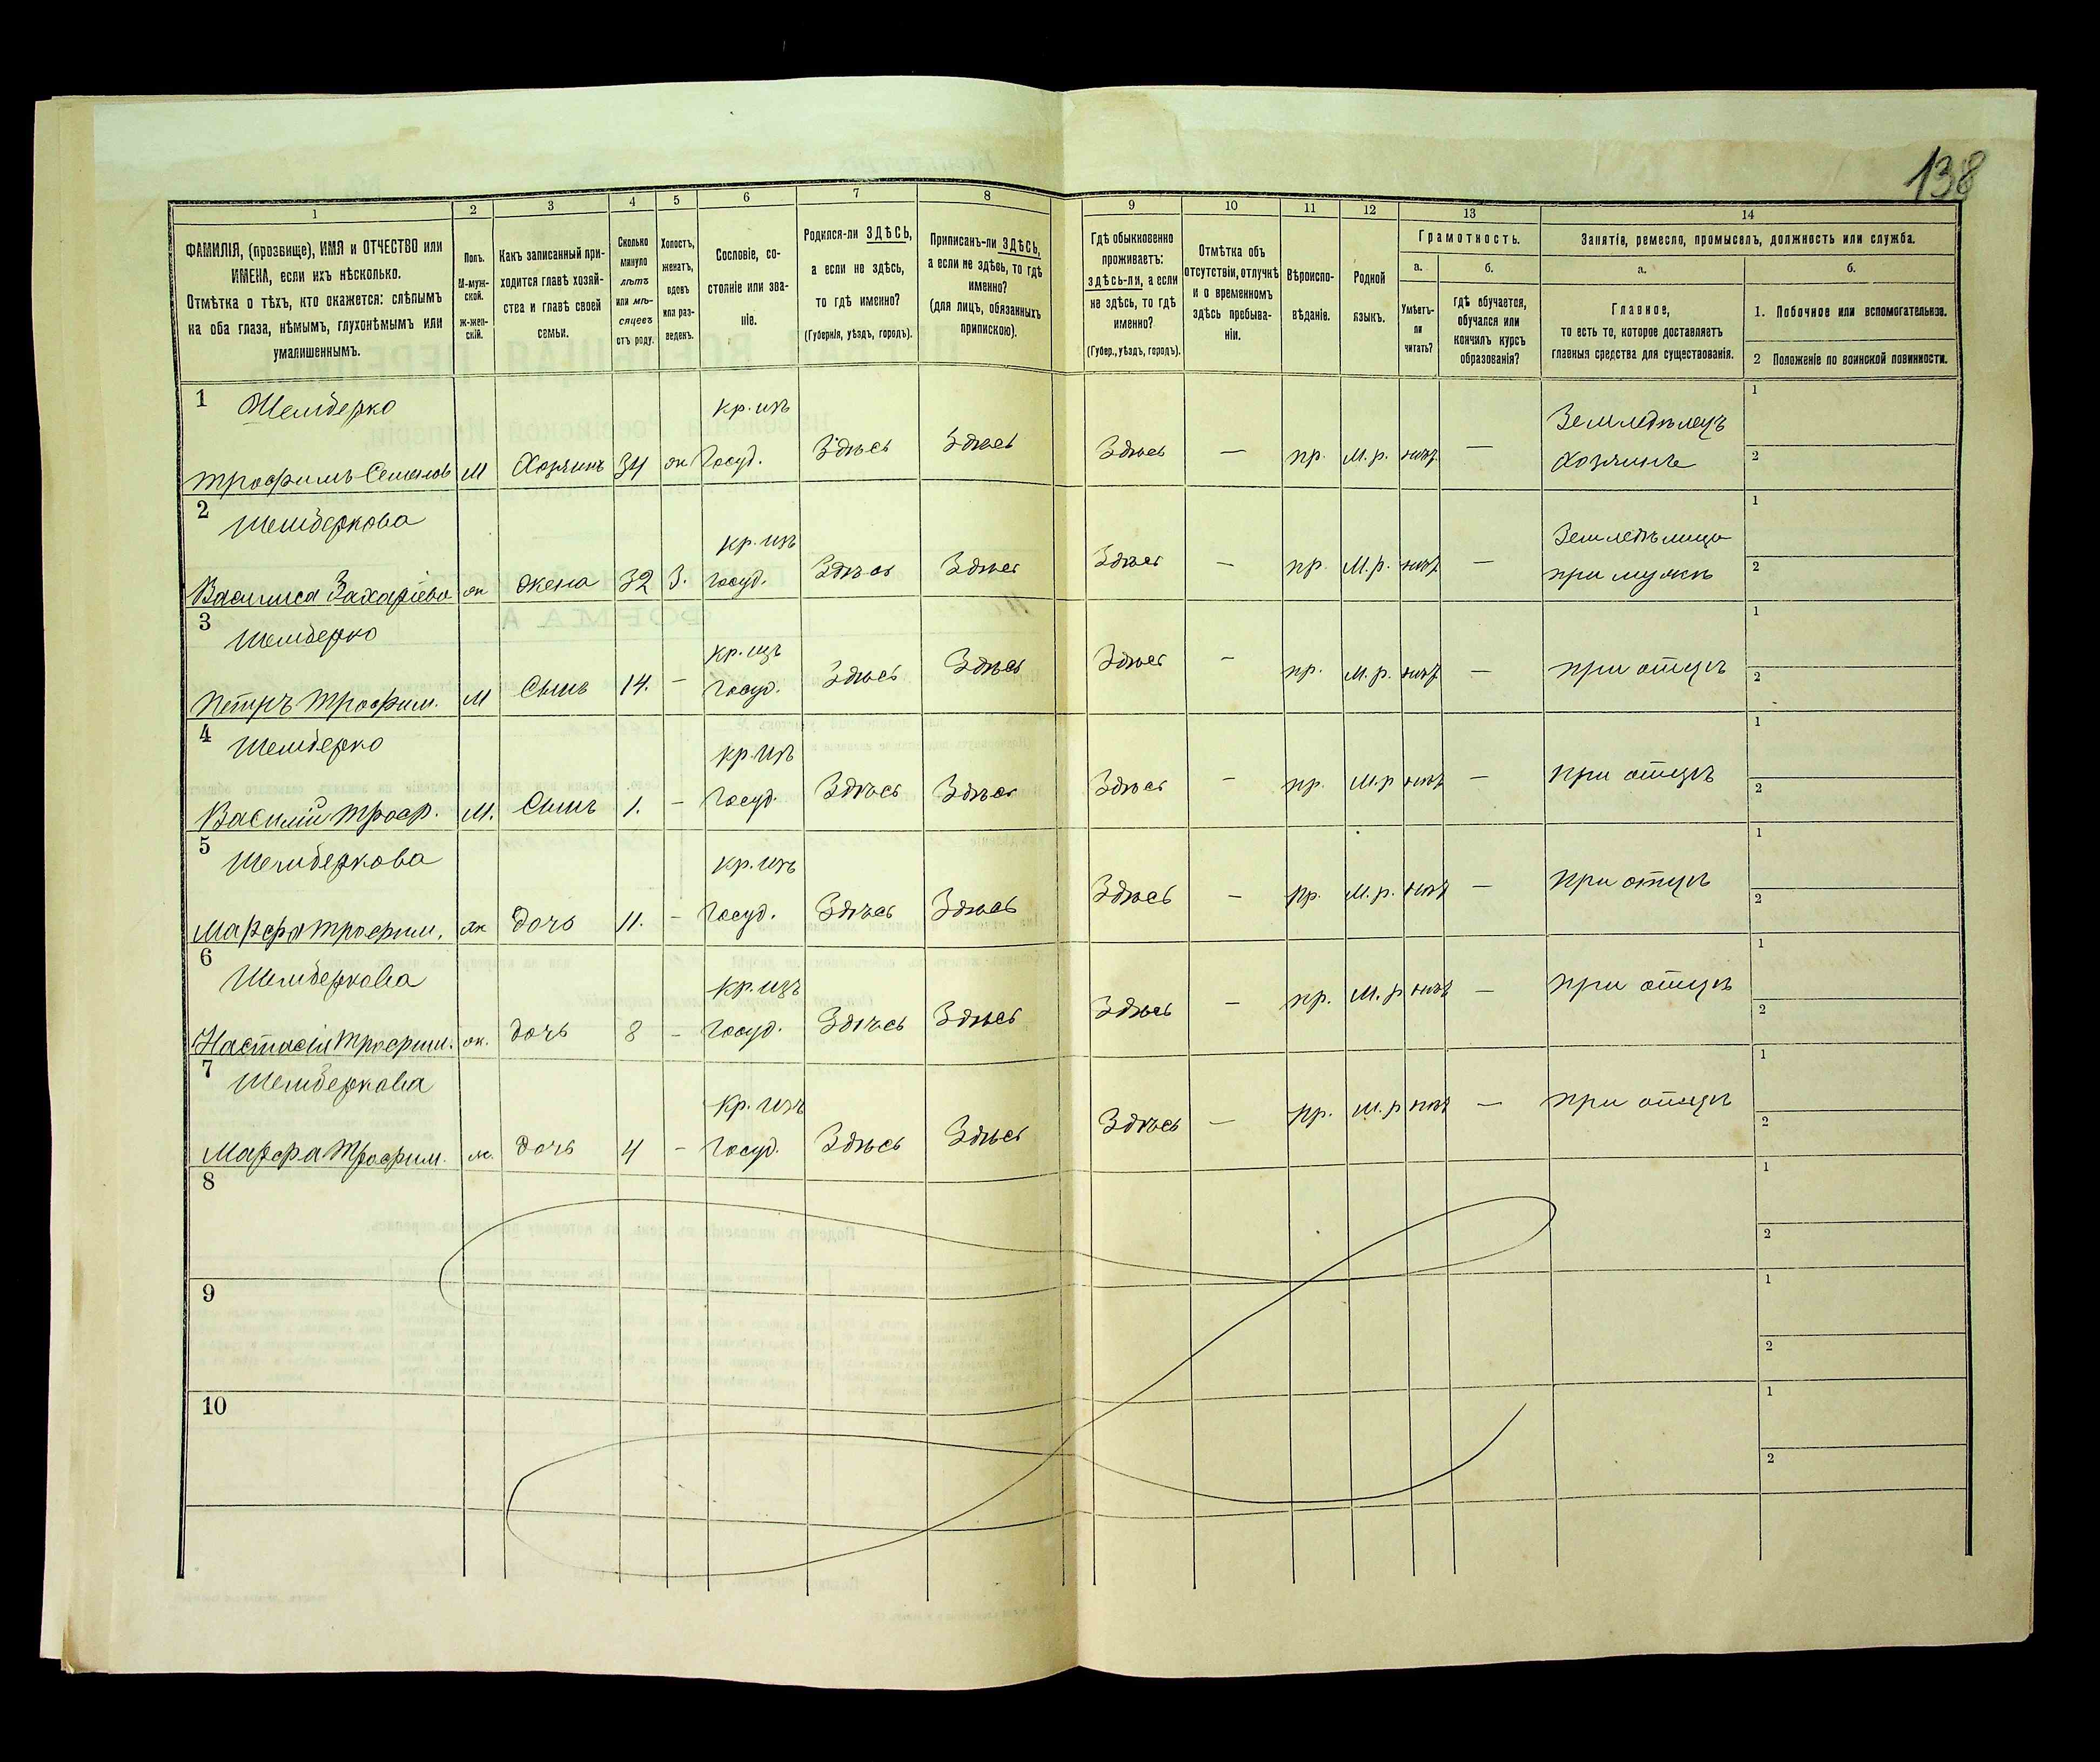 138
1 2 3 4 5 6 7 8 9 10 11 12 13 14
ФАМИЛІЯ, (прозвище), ИМЯ и ОТЧЕСТВО или
ИМЕНА, если ихъ нѣсколько.
Отмѣтка о тѣхъ, кто окажется: слѣпымъ
на оба глаза, нѣмымъ, глухонѣмымъ или
умалишеннымъ.
Полъ.
М-муж-
ской.
ж-жен-
скій.
Какъ записанный при-
ходится главѣ хозяй-
ства и главѣ своей
семьи.
Сколько
минуло
лѣтъ
или мѣ-
сяцевъ
отъ роду.
Холостъ,
женатъ,
вдовъ
или раз-
веденъ.
Сословіе, со-
стояніе или зва-
ніе.
Родился-ли ЗДѢСЬ,
а если не здѣсь,
то гдѣ именно?
(Губернія, уѣздъ, городъ).
Приписанъ-ли ЗДѢСЬ,
а если не здѣсь, то гдѣ
именно?
(для лицъ, обязанныхъ
припискою).
Гдѣ обыкновенно
проживаетъ:
здѣсь-ли, а если
не здѣсь, то гдѣ
именно?
(Губер., уѣздъ, городъ).
Отмѣтка объ
отсутствіи, отлучкѣ
и о временномъ
здѣсь пребыва-
ніи.
Вѣроиспо-
вѣданіе.
Родной
языкъ.
Грамотность.
а.
Умѣетъ-
ли
читать?
б.
гдѣ обучается,
обучался или
кончилъ курсъ
образованія?
Занятіе, ремесло, промыселъ, должность или служба.
а.
Главное,
то есть то, которое доставляетъ
главныя средства для существованія.
б.
1. Побочное или вспомогательное.
2 Положеніе по воинской повинности.
1 Шемберко кр. изъ Земледѣлецъ 1
Трофимъ Семенов М Хозяинъ 34 ж Госуд. Здѣсь Здѣсь Здѣсь — пр. М.р. нѣт — хозяинъ 2
2 Шемберкова кр. изъ Земледѣлица 1
Василиса Захарьева ж жена 32 З. Госуд. Здѣсь Здѣсь Здѣсь — пр. М.р. нѣт — при мужѣ 2
3 Шемберко кр. изъ 1
Петръ Трофим. М Сынъ 14. — Госуд. Здѣсь Здѣсь Здѣсь — пр. М.р. нѣт — при отцѣ 2
4 Шемберко кр. изъ 1
Василій Троф. М. Сынъ 1. — Госуд. Здѣсь Здѣсь Здѣсь — пр. М.р нѣт — при отцѣ 2
5 Шемберкова кр. изъ 1
Марфа Трофим. ж дочь 11. — Госуд. Здѣсь Здѣсь Здѣсь — пр. М.р. нѣт — при отцѣ 2
6 Шемберкова кр. изъ 1
Настасія Трофим. ж. дочь 8 — Госуд. Здѣсь Здѣсь Здѣсь — пр. М.р нѣт — при отцѣ 2
7 Шемберкова кр. изъ 1
Марфа Трофим. ж. дочь 4 — Госуд. Здѣсь Здѣсь Здѣсь — пр. М.р нѣт — при отцѣ 2
8 1
2
9 1
2
10 1
2